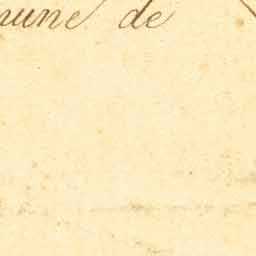 mune de